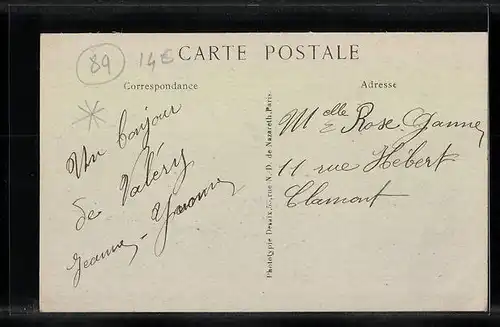 89 14€
CARTE POSTALE
Correspondance
Adresse
Un bonjour
de Valéry
Jeanne - Yvonne
Melle Rose Ganne
11 rue Hébert
Clamont
Phototypie Desaix, rue N.-D. de Nazareth, Paris.